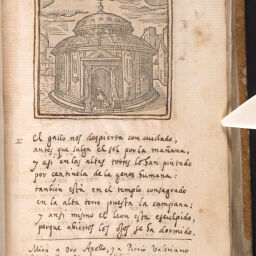 El gallo nos despierta con cuidado,
antes que salga el sol por la mañana,
y asi en las altas torres lo han pintado
por centinela de la gente humana:
tambien está en el templo consagrado
en la alta torre puesta la campana;
y ansi mismo el leon esta esculpido,
porque abiertos los ojos se ha dormido.
Mira a Oro Apollo, y a Pierio Valeriano